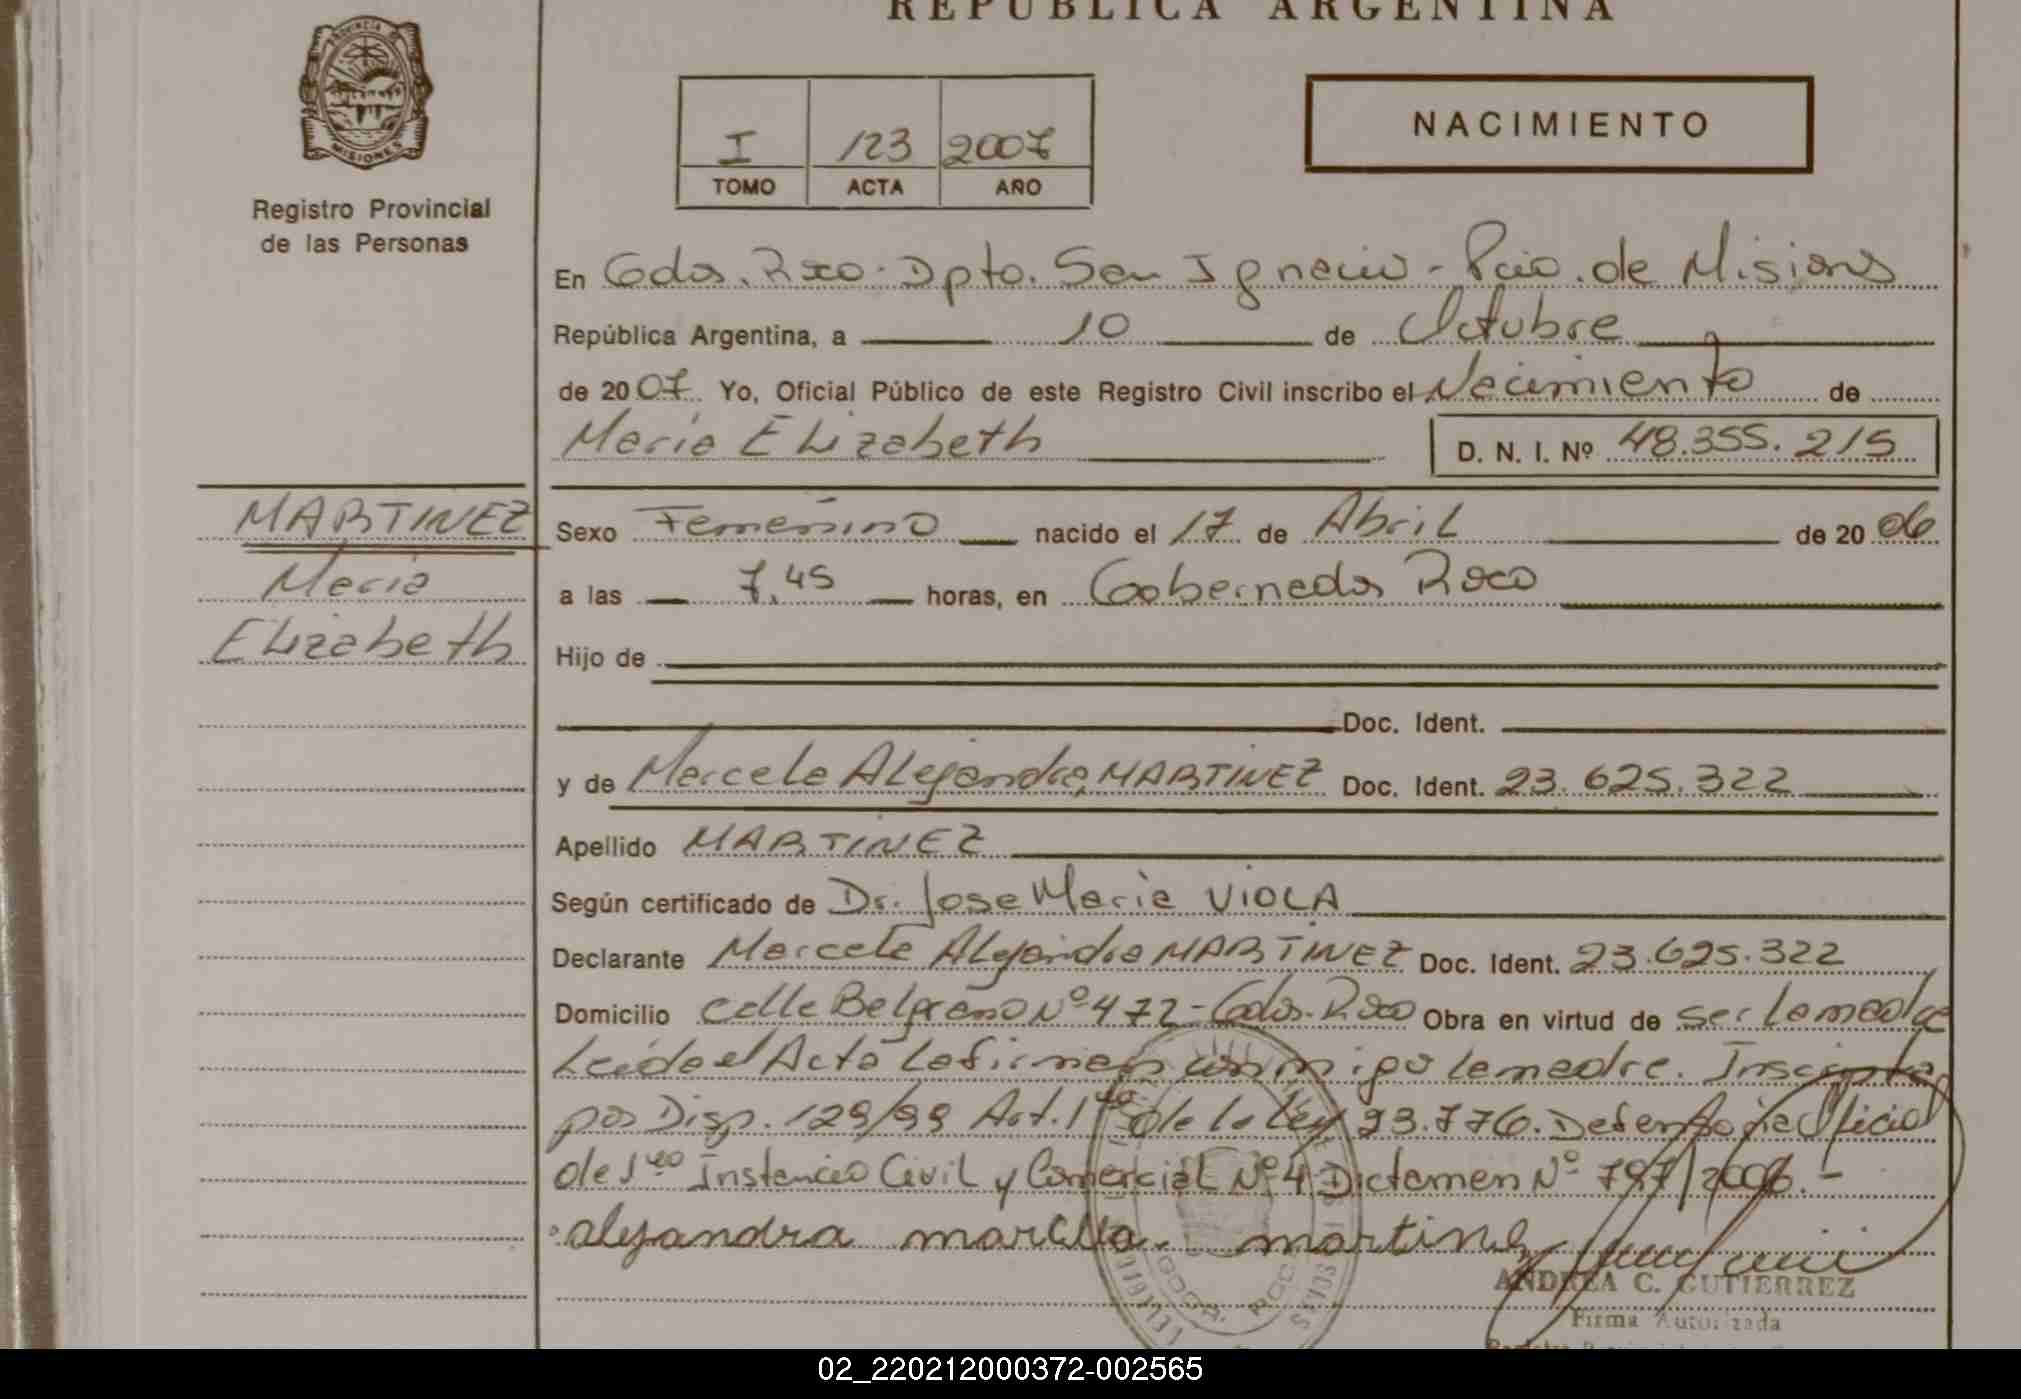 REPUBLICA ARGENTINA
PROVINCIA DE
MISIONES
Registro Provincial
de las Personas
I 123 2007
TOMO ACTA AÑO
NACIMIENTO
En Gdor. Roca. Dpto. San Ignacio - Pcia. de Misiones
República Argentina, a 10 de Octubre
de 2007. Yo, Oficial Público de este Registro Civil inscribo el Nacimiento de
Maria Elizabeth D. N. I. Nº 48.355.215
MARTINEZ
Maria
Elizabeth
Sexo Femenino nacido el 17 de Abril de 2006
a las 7,45 horas, en Gobernador Roca
Hijo de
Doc. Ident.
y de Marcela Alejandra MARTINEZ Doc. Ident. 23.625.322
Apellido MARTINEZ
Según certificado de Dr. Jose Maria VIOLA
Declarante Marcela Alejandra MARTINEZ Doc. Ident. 23.625.322
Domicilio calle Belgrano Nº 472 - Gdor. Roca Obra en virtud de ser la madre
Leida el Acta la firman conmigo la madre. Inscripta
por Disp. 129/99 Art. 1ro de la Ley 23.776. Defensoria Oficial
de 1ra Instancia Civil y Comercial Nº 4 Dictamen Nº 797/2006.-
alejandra marcela martinez
ANDREA C. GUTIERREZ
Firma Autorizada
GDOR. ROCA
02_220212000372-002565